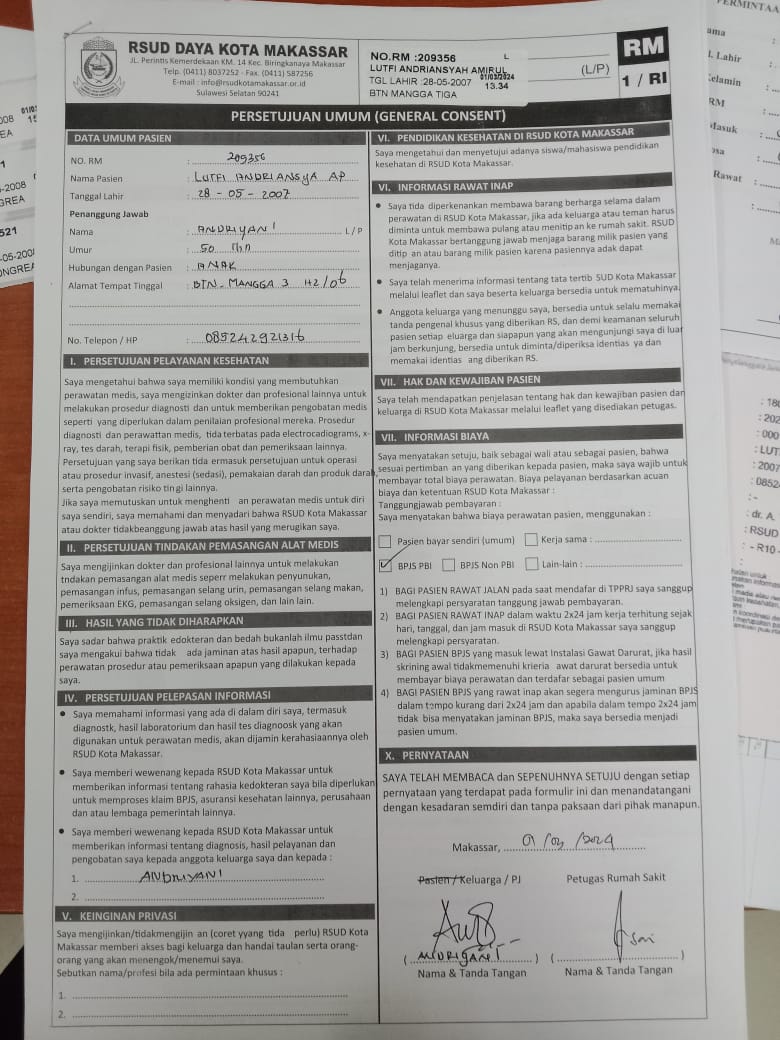 RSUD DAYA KOTA MAKASSAR
JL. Perintis Kemerdekaan KM. 14 Kec. Biringkanaya Makassar
Telp. (0411) 8037252 - Fax. (0411) 587256
E-mail : info@rsudkotamakassar.or.id
Sulawesi Selatan 90241
NO.RM :209356 L
LUTFI ANDRIANSYAH AMIRUL
TGL LAHIR :28-05-2007 01/03/2024
13.34
BTN MANGGA TIGA
(L/P)
RM
1 / RI
PERSETUJUAN UMUM (GENERAL CONSENT)
DATA UMUM PASIEN
NO. RM : 209356
Nama Pasien : LUTFI ANDRIANSYA AP
Tanggal Lahir : 28 - 05 - 2007
Penanggung Jawab
Nama : ANDRIYANI L / P
Umur : 50 thn
Hubungan dengan Pasien : ANAK
Alamat Tempat Tinggal : BTN. MANGGA 3 H2/06
No. Telepon / HP : 085242921316
I. PERSETUJUAN PELAYANAN KESEHATAN
Saya mengetahui bahwa saya memiliki kondisi yang membutuhkan
perawatan medis, saya mengizinkan dokter dan profesional lainnya untuk
melakukan prosedur diagnosti dan untuk memberikan pengobatan medis
seperti yang diperlukan dalam penilaian profesional mereka. Prosedur
diagnosti dan perawattan medis, tida terbatas pada electrocadiograms, x-
ray, tes darah, terapi fisik, pemberian obat dan pemeriksaan lainnya.
Persetujuan yang saya berikan tida ermasuk persetujuan untuk operasi
atau prosedur invasif, anestesi (sedasi), pemakaian darah dan produk darah,
serta pengobatan risiko tin gi lainnya.
Jika saya memutuskan untuk menghenti an perawatan medis untuk diri
saya sendiri, saya memahami dan menyadari bahwa RSUD Kota Makassar
atau dokter tidakbeanggung jawab atas hasil yang merugikan saya.
II. PERSETUJUAN TINDAKAN PEMASANGAN ALAT MEDIS
Saya mengijinkan dokter dan profesional lainnya untuk melakukan
tndakan pemasangan alat medis seperr melakukan penyunukan,
pemasangan infus, pemasangan selang urin, pemasangan selang makan,
pemeriksaan EKG, pemasangan selang oksigen, dan lain lain.
III. HASIL YANG TIDAK DIHARAPKAN
Saya sadar bahwa praktik edokteran dan bedah bukanlah ilmu passtdan
saya mengakui bahwa tidak ada jaminan atas hasil apapun, terhadap
perawatan prosedur atau pemeriksaan apapun yang dilakukan kepada
saya.
IV. PERSETUJUAN PELEPASAN INFORMASI
Saya memahami informasi yang ada di dalam diri saya, termasuk
diagnostk, hasil laboratorium dan hasil tes diagnoosk yang akan
digunakan untuk perawatan medis, akan dijamin kerahasiaannya oleh
RSUD Kota Makassar.
Saya memberi wewenang kepada RSUD Kota Makassar untuk
memberikan informasi tentang rahasia kedokteran saya bila diperlukan
untuk memproses klaim BPJS, asuransi kesehatan lainnya, perusahaan
dan atau lembaga pemerintah lainnya.
Saya memberi wewenang kepada RSUD Kota Makassar untuk
memberikan informasi tentang diagnosis, hasil pelayanan dan
pengobatan saya kepada anggota keluarga saya dan kepada :
1. ANDRIYANI
2.
V. KEINGINAN PRIVASI
Saya mengijinkan/tidakmengijin an (coret yyang tida perlu) RSUD Kota
Makassar memberi akses bagi keluarga dan handai taulan serta orang-
orang yang akan menengok/menemui saya.
Sebutkan nama/profesi bila ada permintaan khusus :
1.
2.
VI. PENDIDIKAN KESEHATAN DI RSUD KOTA MAKASSAR
Saya mengetahui dan menyetujui adanya siswa/mahasiswa pendidikan
kesehatan di RSUD Kota Makassar.
VI. INFORMASI RAWAT INAP
Saya tida diperkenankan membawa barang berharga selama dalam
perawatan di RSUD Kota Makassar, jika ada keluarga atau teman harus
diminta untuk membawa pulang atau menitip an ke rumah sakit. RSUD
Kota Makassar bertanggung jawab menjaga barang milik pasien yang
ditip an atau barang milik pasien karena pasiennya adak dapat
menjaganya.
Saya telah menerima informasi tentang tata tertib SUD Kota Makassar
melalui leaflet dan saya beserta keluarga bersedia untuk mematuhinya.
Anggota keluarga yang menunggu saya, bersedia untuk selalu memakai
tanda pengenal khusus yang diberikan RS, dan demi keamanan seluruh
pasien setiap eluarga dan siapapun yang akan mengunjungi saya di luar
jam berkunjung, bersedia untuk diminta/diperiksa identias ya dan
memakai identias ang diberikan RS.
VII. HAK DAN KEWAJIBAN PASIEN
Saya telah mendapatkan penjelasan tentang hak dan kewajiban pasien dan
keluarga di RSUD Kota Makassar melalui leaflet yang disediakan petugas.
VII. INFORMASI BIAYA
Saya menyatakan setuju, baik sebagai wali atau sebagai pasien, bahwa
sesuai pertimban an yang diberikan kepada pasien, maka saya wajib untuk
membayar total biaya perawatan. Biaya pelayanan berdasarkan acuan
biaya dan ketentuan RSUD Kota Makassar :
Tanggungjawab pembayaran :
Saya menyatakan bahwa biaya perawatan pasien, menggunakan :
Pasien bayar sendiri (umum) Kerja sama :
BPJS PBI BPJS Non PBI Lain-lain :
1) BAGI PASIEN RAWAT JALAN pada saat mendafar di TPPRJ saya sanggup
melengkapi persyaratan tanggung jawab pembayaran.
2) BAGI PASIEN RAWAT INAP dalam waktu 2x24 jam kerja terhitung sejak
hari, tanggal, dan jam masuk di RSUD Kota Makassar saya sanggup
melengkapi persyaratan.
3) BAGI PASIEN BPJS yang masuk lewat Instalasi Gawat Darurat, jika hasil
skrining awal tidakmemenuhi krieria awat darurat bersedia untuk
membayar biaya perawatan dan terdafar sebagai pasien umum
4) BAGI PASIEN BPJS yang rawat inap akan segera mengurus jaminan BPJS
dalam tempo kurang dari 2x24 jam dan apabila dalam tempo 2x24 jam
tidak bisa menyatakan jaminan BPJS, maka saya bersedia menjadi
pasien umum.
X. PERNYATAAN
SAYA TELAH MEMBACA dan SEPENUHNYA SETUJU dengan setiap
pernyataan yang terdapat pada formulir ini dan menandatangani
dengan kesadaran semdiri dan tanpa paksaan dari pihak manapun.
Makassar, 01/03/2024
Pasien / Keluarga / PJ Petugas Rumah Sakit
( ANDRIYANI ) ( )
Nama & Tanda Tangan Nama & Tanda Tangan